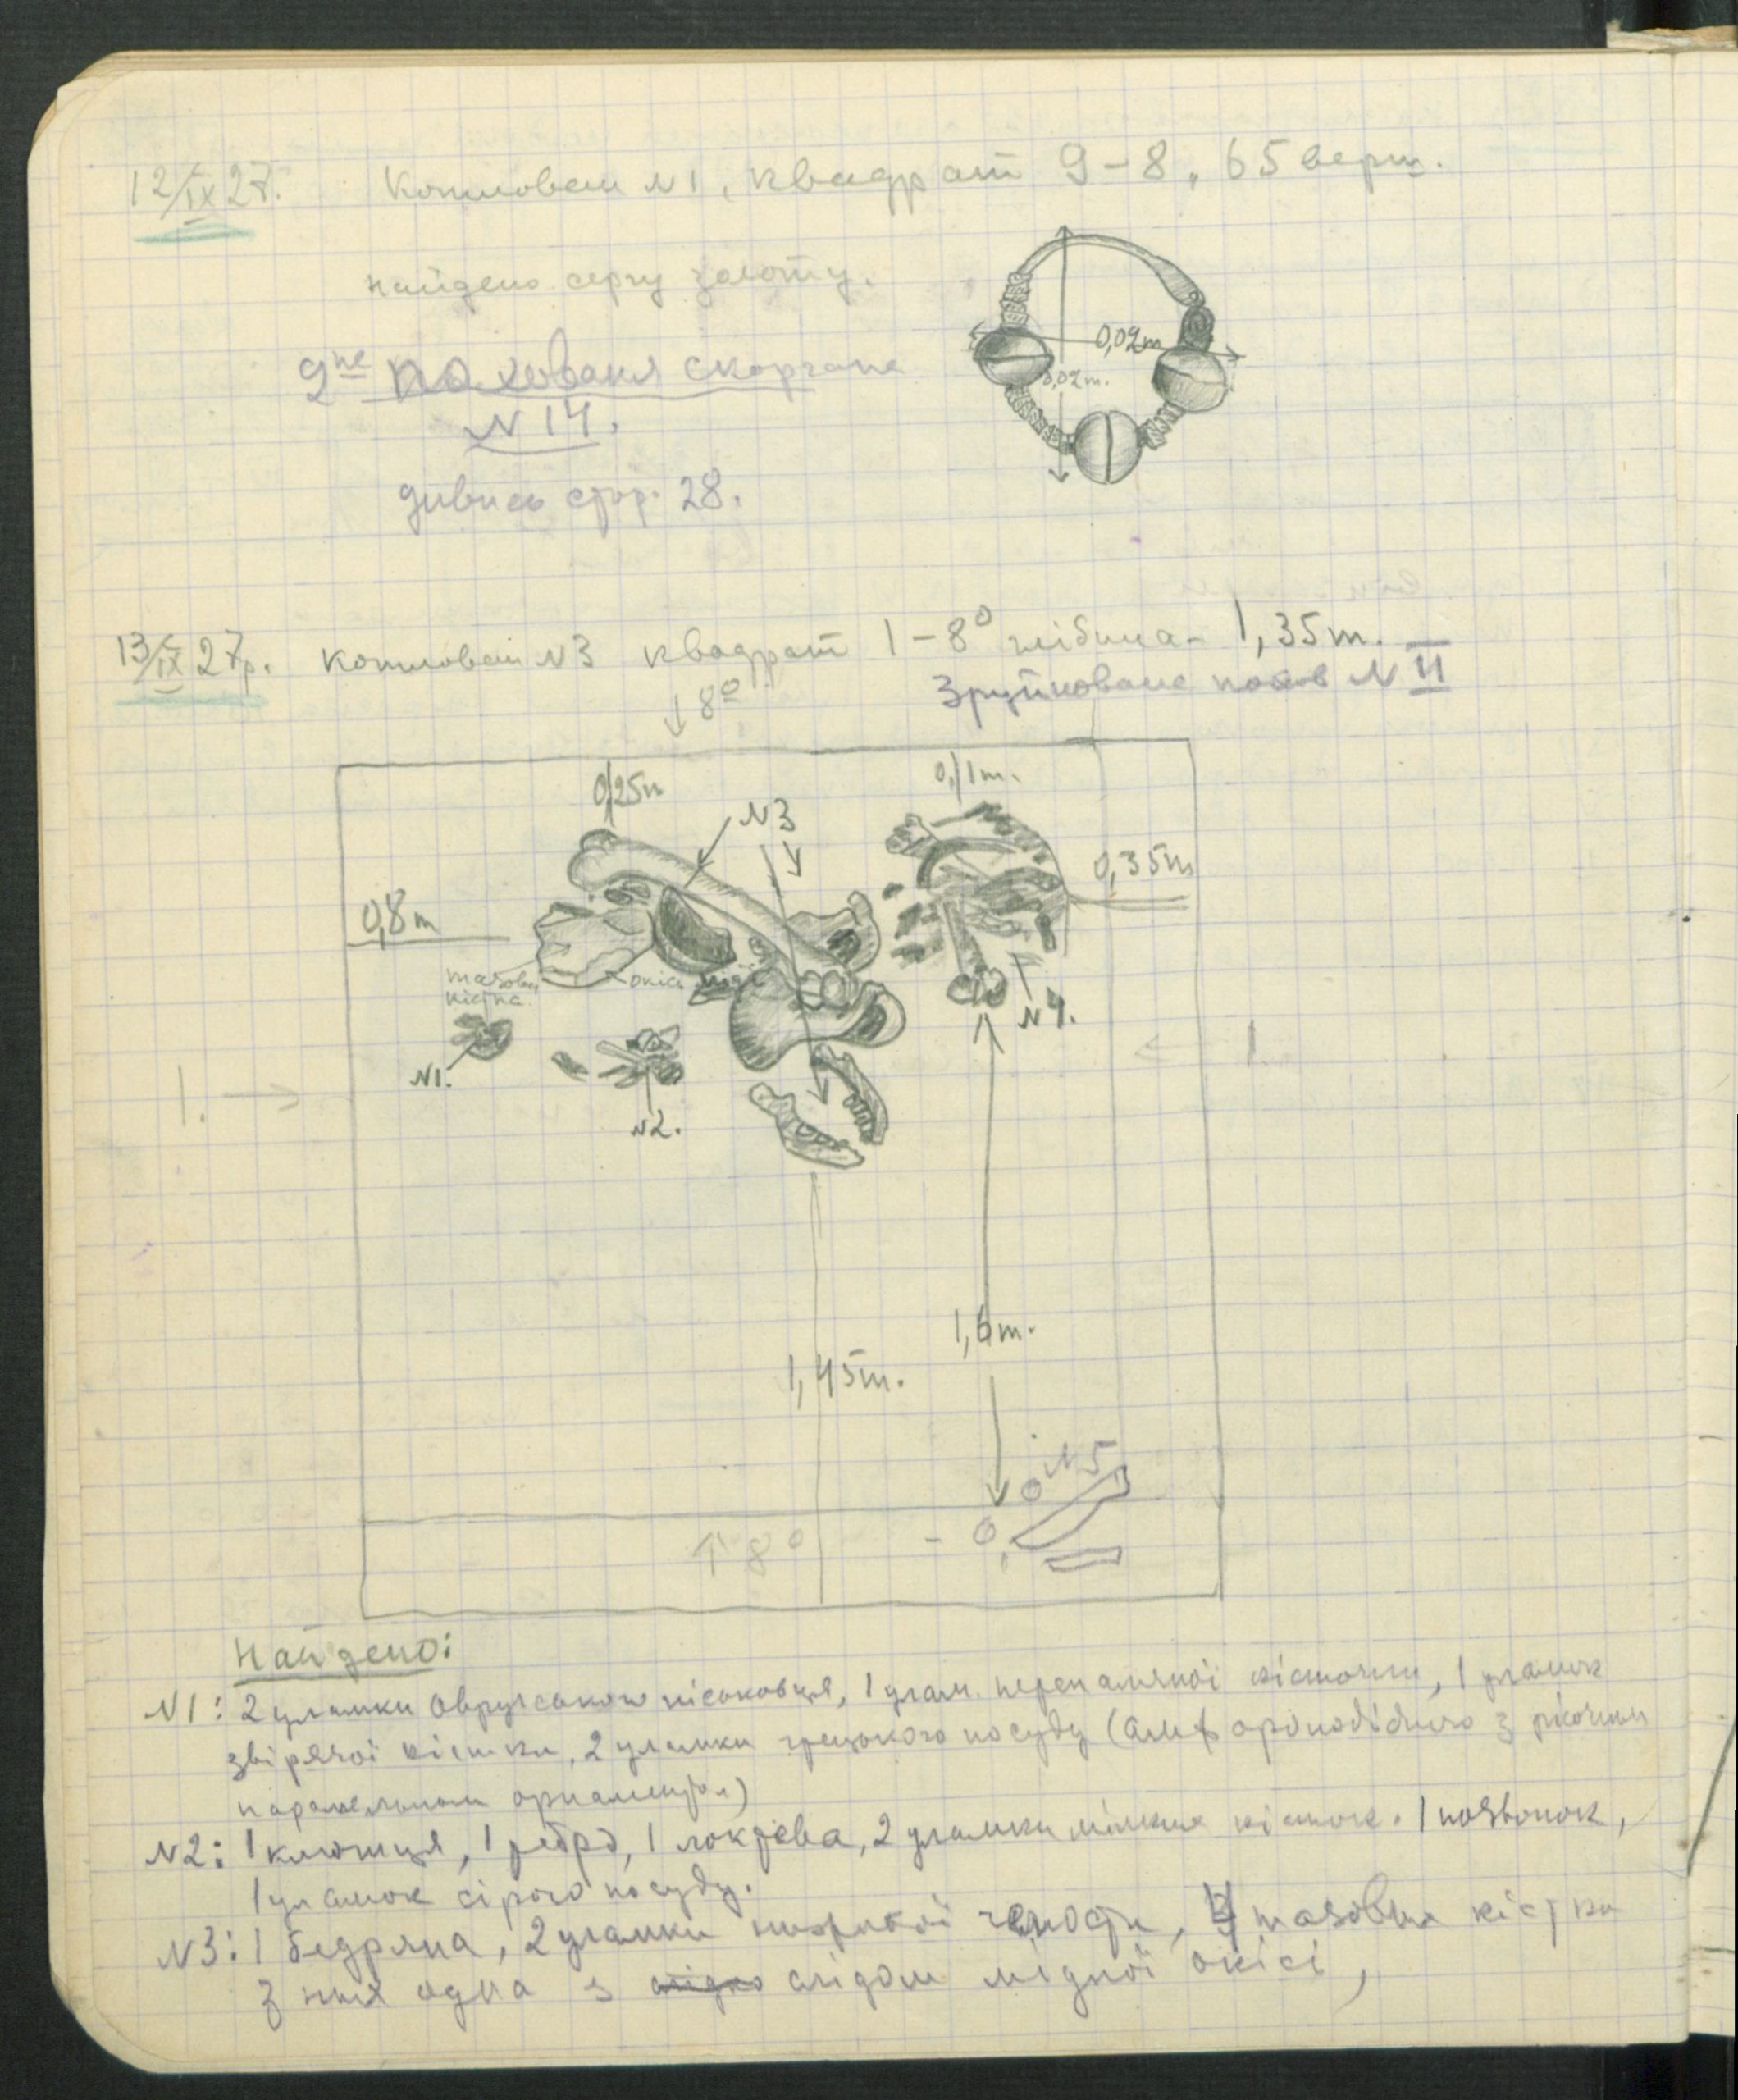 12/IX 27. Котлован №1, квадрат 9–8, 65 верш.
найдено сергу золоту.
0,02m
0,02m.
9не поховання скорчене
№14.
дивись стор. 28.
13/IX 27р. Котлован №3 квадрат 1–8° глібина – 1,35m.
Зруйноване похов №II
↓8°
0,25m
№3
0,1m.
0,35m
0,8m
тазова кістка
окісь міді
№4.
№1.
№2.
1. →
← 1.
1,6m.
1,45m.
№5
↑8°
Найдено:
№1: 2 уламки Овруцького пісковця, 1 улам. перепаляної кісточки, 1 уламок
звірячої кістки, 2 уламки грецького посуду (амфороподібного з рісочним
паралельним орнаментом)
№2: 1 ключиця, 1 ребро, 1 2 уламки мілких кісток. 1 позвонок,
1 уламок сірого посуду.
№3: 1 бедряна, 2 уламки нижньої челюсти, 4 тазових кістки
з них одна з слідом мідної окісі,